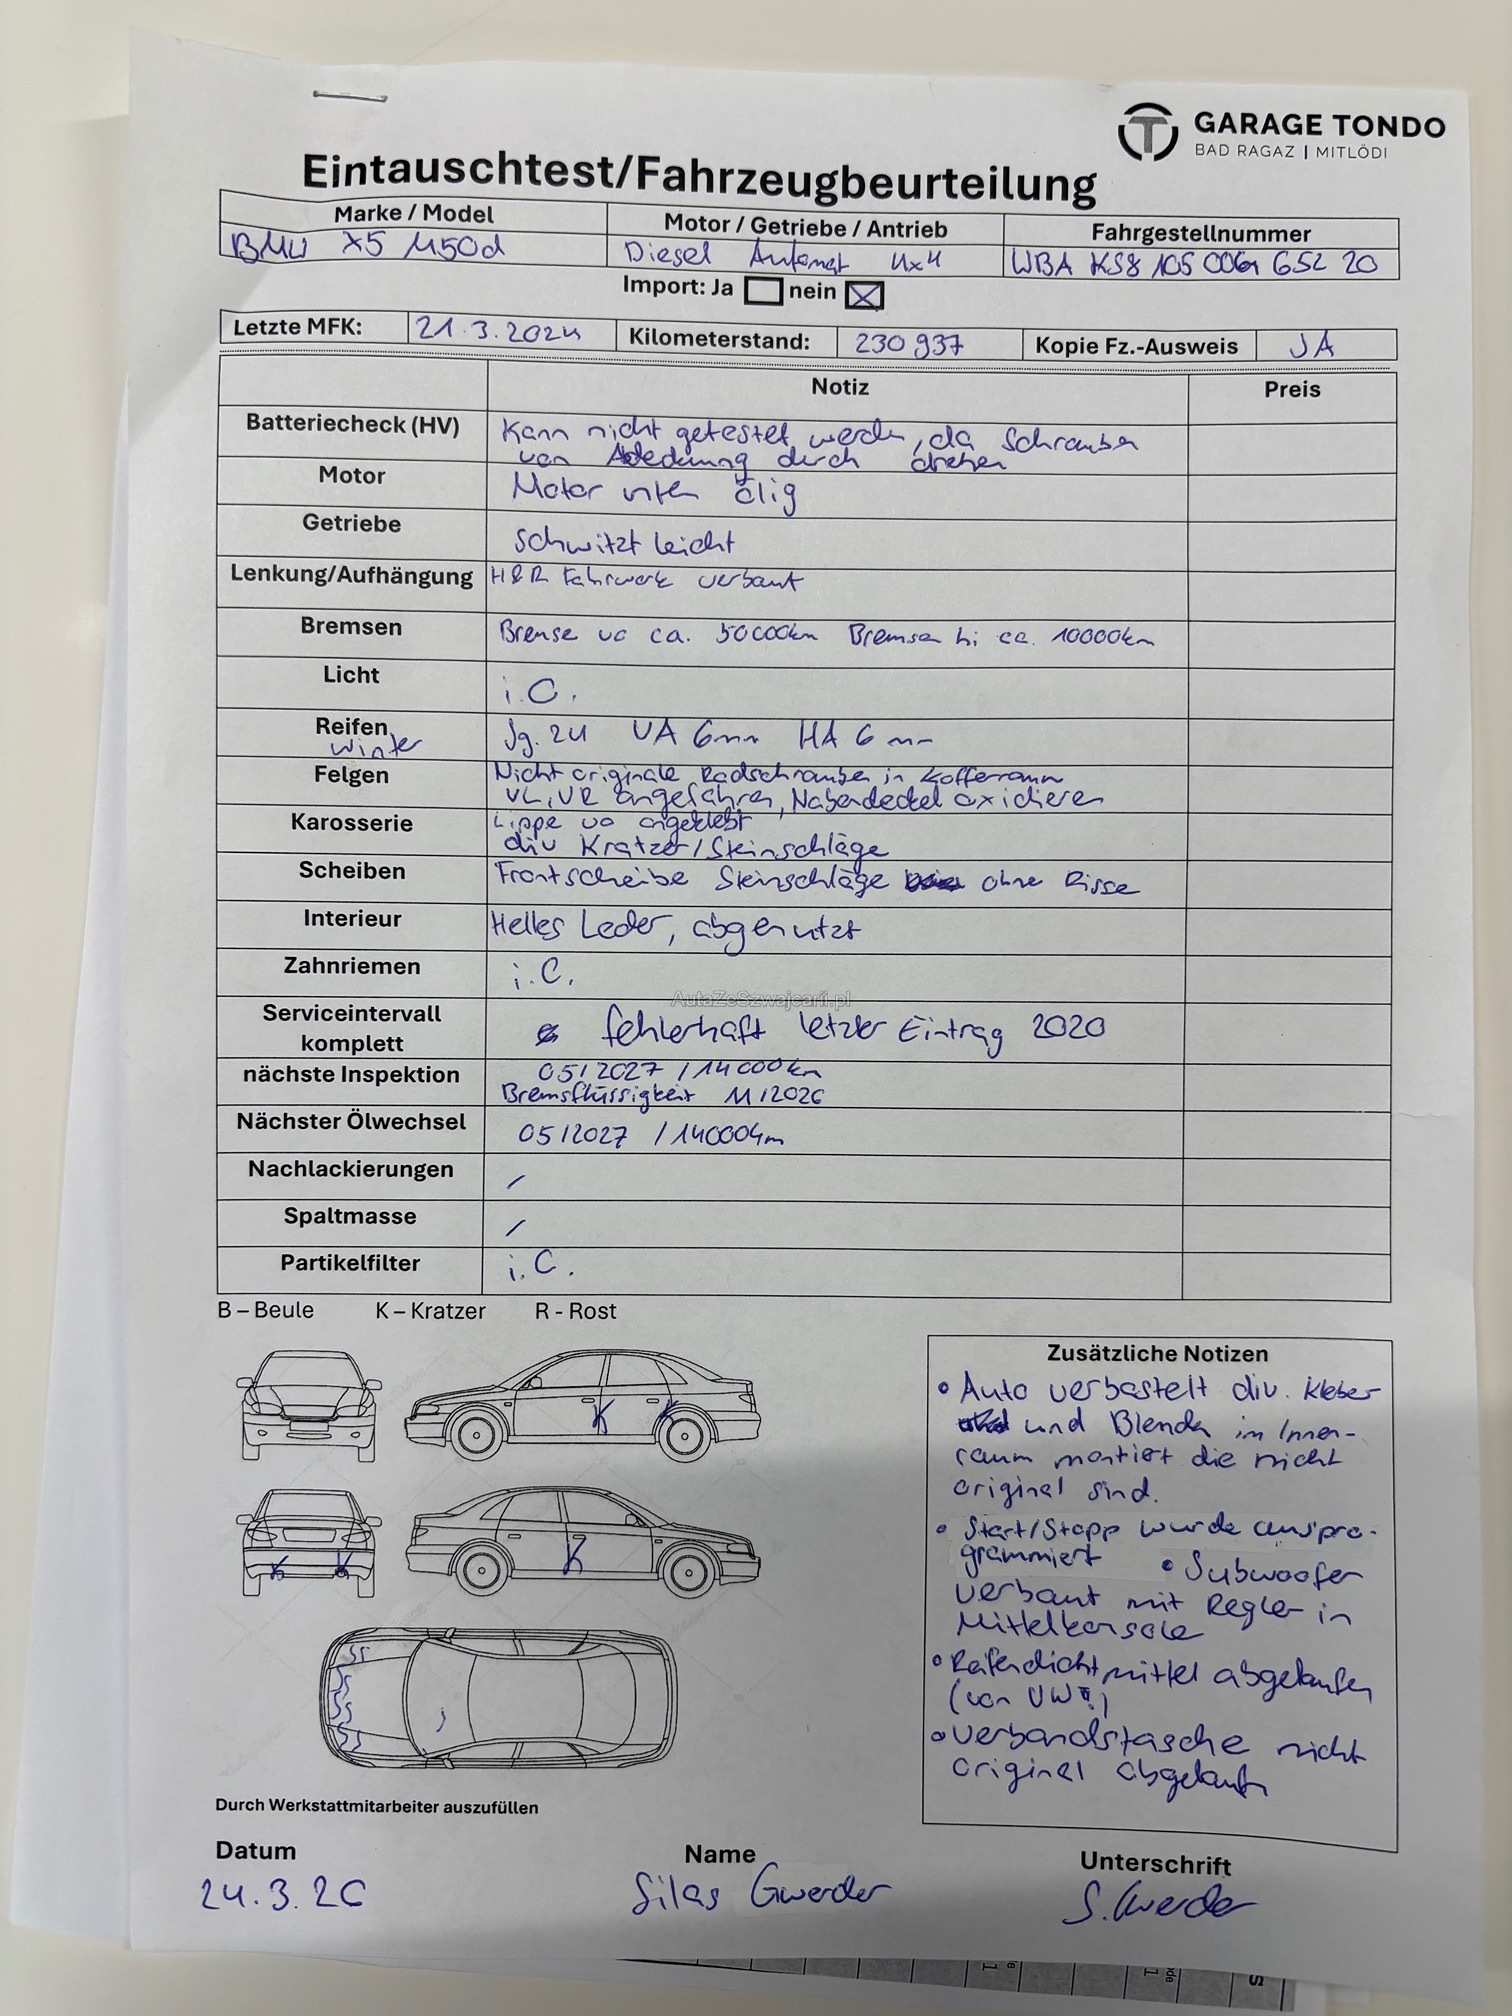 GARAGE TONDO
BAD RAGAZ | MITLÖDI
Eintauschtest/Fahrzeugbeurteilung
Marke / Model Motor / Getriebe / Antrieb Fahrgestellnummer
BMW X5 M50d Diesel Automat 4x4 WBA KS8 105 00G 652 20
Import: Ja nein
Letzte MFK: 21.3.2024 Kilometerstand: 230937 Kopie Fz.-Ausweis JA
Notiz Preis
Batteriecheck (HV) Kann nicht getestet werden, da Schrauben
von Abdeckung durch drehen
Motor Motor unten ölig
Getriebe schwitzt leicht
Lenkung/Aufhängung H&R Fahrwerk verbaut
Bremsen Bremse vo ca. 50000km Bremsen hi ca. 10000km
Licht i.O.
Reifen Jg. 24 VA 6mm HA 6mm
Winter
Felgen Nicht originale Radschrauben in Kofferraum
VL, VR angefahren, Nabendeckel oxidieren
Karosserie Lippe vo angeklebt
div Kratzer/Steinschläge
Scheiben Frontscheibe Steinschläge ohne Risse
Interieur Helles Leder, abgenutzt
Zahnriemen i.O.
AutaZeSzwajcarii.pl
Serviceintervall komplett fehlerhaft letzter Eintrag 2020
nächste Inspektion 05/2027 / 14000km
Bremsflüssigkeit 11/2026
Nächster Ölwechsel 05/2027 / 14000km
Nachlackierungen /
Spaltmasse /
Partikelfilter i.O.
B – Beule K – Kratzer R - Rost
K K
K K
K
Zusätzliche Notizen
• Auto verbastelt div. Kleber
und Blenden im Innen-
raum montiert die nicht
original sind.
• Start/Stopp wurde auspro-
grammiert • Subwoofer
verbaut mit Regler in
Mittelkonsole
• Reifendichtmittel abgelaufen
(von VW!)
• Verbandstasche nicht
original abgelaufen
Durch Werkstattmitarbeiter auszufüllen
Datum Name Unterschrift
24.3.26 Silas Gwerder S. Gwerder